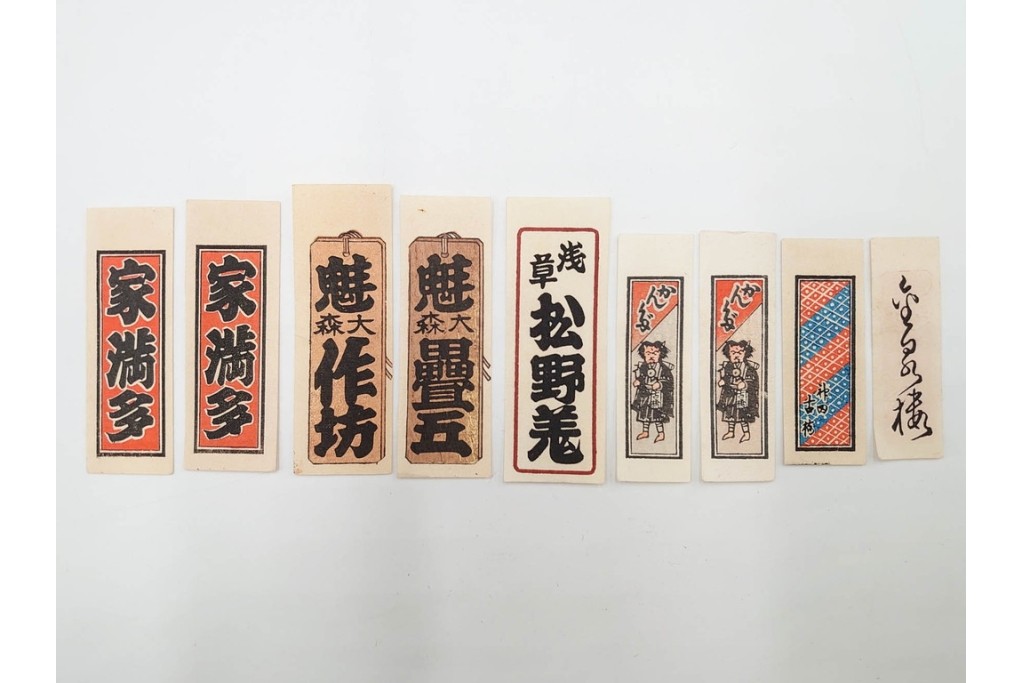 家満多
家満多
魁
大森
作坊
魁
大森
疊五
浅草
松野羗
かんだ
かんだ
神田